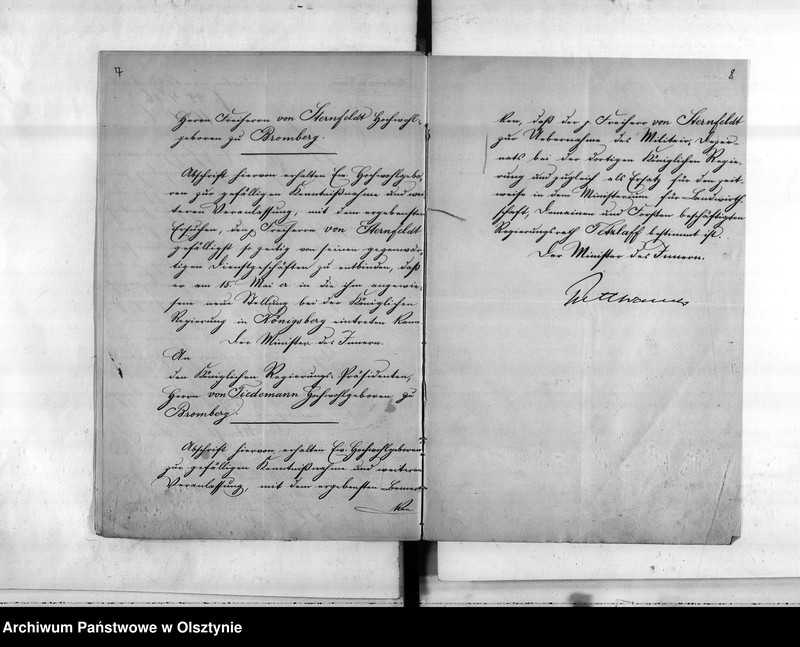 7
Herrn Freiherrn von Sternfeldt Hochwohl-
geboren zu Bromberg.
Abschrift hiervon erhalten Ew. Hochwohlgebo-
ren zur gefälligen Kenntnißnahme und wei-
teren Veranlassung, mit dem ergebensten
Ersuchen, den p. Freiherrn von Sternfeldt
gefälligst so zeitig von seinen gegenwär-
tigen Dienstgeschäften zu entbinden, daß
er am 15. Mai cr. in die ihm angewie-
sene neue Stellung bei der Königlichen
Regierung in Königsberg eintreten kann.
Der Minister des Innern.
An
den Königlichen Regierungs-Präsidenten,
Herrn von Tiedemann Hochwohlgeboren zu
Bromberg.
Abschrift hiervon erhalten Ew. Hochwohlgeboren
zur gefälligen Kenntnißnahme und weiteren
Veranlassung, mit dem ergebensten Bemer-
ken
8
ken, daß der p. Freiherr von Sternfeldt
zur Uebernahme des Militair-Dezer-
nats bei der dortigen Königlichen Regie-
rung und zugleich als Ersatz für den zeit-
weise in dem Ministerium für Landwirth-
schaft, Domainen und Forsten beschäftigten
Regierungsrath bestimmt ist.
Der Minister des Innern.
Archiwum Państwowe w Olsztynie